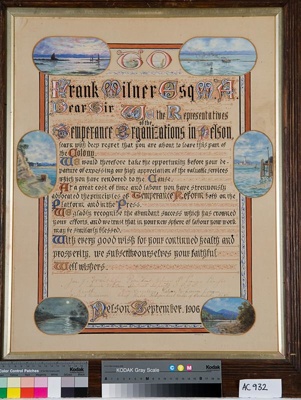 TO
Frank Milner Esq M.A.
Dear Sir We the Representatives
of the
Temperance Organizations in Nelson,
learn with deep regret that you are about to leave this part of
the Colony.
We would therefore take the opportunity before your de-
parture of expressing our high appreciation of the valuable services
which you have rendered to the Cause.
At a great cost of time and labour you have strenuously
advocated the principles of Temperance Reform both on the
Platform and in the Press.
We gladly recognise the abundant success which has crowned
your efforts, and we trust that in your new sphere of labour your work
may be similarly blessed.
With every good wish for your continued health and
prosperity, we subscribe ourselves your faithful
Well wishers.
Nelson September. 1906
Color Control Patches
Kodak
KODAK Gray Scale
C
M
Kodak
AC 932